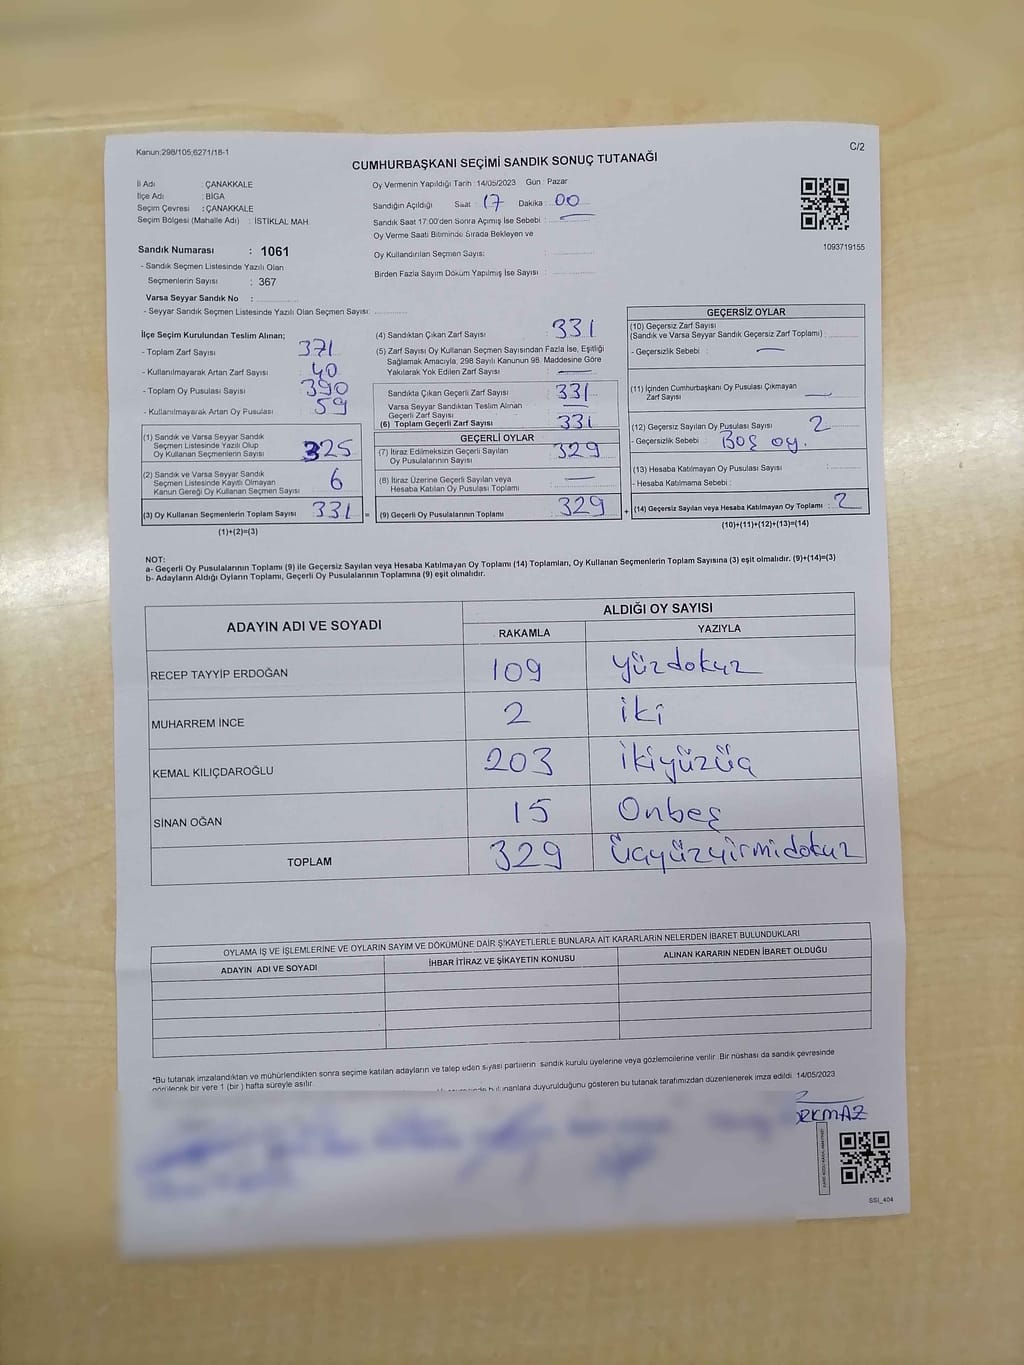 Kanun;298/105,6271/18-1
C/2
CUMHURBAŞKANI SEÇİMİ SANDIK SONUÇ TUTANAĞI
İl Adı : ÇANAKKALE
İlçe Adı : BİGA
Seçim Çevresi : ÇANAKKALE
Seçim Bölgesi (Mahalle Adı) : İSTİKLAL MAH
Oy Vermenin Yapıldığı Tarih : 14/05/2023 Gün : Pazar
Sandığın Açıldığı Saat : 17 Dakika : 00
Sandık Saat 17:00'den Sonra Açımış İse Sebebi :
Oy Verme Saati Bitiminde Sırada Bekleyen ve
Oy Kullandırılan Seçmen Sayısı:
Birden Fazla Sayım Döküm Yapılmış İse Sayısı :
1093719155
Sandık Numarası : 1061
- Sandık Seçmen Listesinde Yazılı Olan
Seçmenlerin Sayısı : 367
Varsa Seyyar Sandık No :
- Seyyar Sandık Seçmen Listesinde Yazılı Olan Seçmen Sayısı:
İlçe Seçim Kurulundan Teslim Alınan;
- Toplam Zarf Sayısı 371
- Kullanılmayarak Artan Zarf Sayısı : 40
- Toplam Oy Pusulası Sayısı : 390
- Kullanılmayarak Artan Oy Pusulası : 59
(1) Sandık ve Varsa Seyyar Sandık
Seçmen Listesinde Yazılı Olup
Oy Kullanan Seçmenlerin Sayısı 325
(2) Sandık ve Varsa Seyyar Sandık
Seçmen Listesinde Kayıtlı Olmayan
Kanun Gereği Oy Kullanan Seçmen Sayısı 6
(3) Oy Kullanan Seçmenlerin Toplam Sayısı 331 =
(1)+(2)=(3)
(4) Sandıktan Çıkan Zarf Sayısı : 331
(5) Zarf Sayısı Oy Kullanan Seçmen Sayısından Fazla İse, Eşitliği
Sağlamak Amacıyla, 298 Sayılı Kanunun 98. Maddesine Göre
Yakılarak Yok Edilen Zarf Sayısı :
Sandıkta Çıkan Geçerli Zarf Sayısı : 331
Varsa Seyyar Sandıktan Teslim Alınan
Geçerli Zarf Sayısı :
(6) Toplam Geçerli Zarf Sayısı : 331
GEÇERLİ OYLAR
(7) İtiraz Edilmeksizin Geçerli Sayılan
Oy Pusulalarının Sayısı : 329
(8) İtiraz Üzerine Geçerli Sayılan veya
Hesaba Katılan Oy Pusulası Toplamı :
(9) Geçerli Oy Pusulalarının Toplamı : 329 +
GEÇERSİZ OYLAR
(10) Geçersiz Zarf Sayısı
(Sandık ve Varsa Seyyar Sandık Geçersiz Zarf Toplamı) :
- Geçersizlik Sebebi :
(11) İçinden Cumhurbaşkanı Oy Pusulası Çıkmayan
Zarf Sayısı :
(12) Geçersiz Sayılan Oy Pusulası Sayısı : 2
- Geçersizlik Sebebi : Boş oy.
(13) Hesaba Katılmayan Oy Pusulası Sayısı :
- Hesaba Katılmama Sebebi :
(14) Geçersiz Sayılan veya Hesaba Katılmayan Oy Toplamı : 2
(10)+(11)+(12)+(13)=(14)
NOT:
a- Geçerli Oy Pusulalarının Toplamı (9) ile Geçersiz Sayılan veya Hesaba Katılmayan Oy Toplamı (14) Toplamları, Oy Kullanan Seçmenlerin Toplam Sayısına (3) eşit olmalıdır. (9)+(14)=(3)
b- Adayların Aldığı Oyların Toplamı, Geçerli Oy Pusulalarının Toplamına (9) eşit olmalıdır.
ADAYIN ADI VE SOYADI ALDIĞI OY SAYISI
RAKAMLA YAZIYLA
RECEP TAYYİP ERDOĞAN 109 yüzdokuz
MUHARREM İNCE 2 iki
KEMAL KILIÇDAROĞLU 203 ikiyüzüç
SİNAN OĞAN 15 Onbeş
TOPLAM 329 Üçyüzyirmidokuz
OYLAMA İŞ VE İŞLEMLERİNE VE OYLARIN SAYIM VE DÖKÜMÜNE DAİR ŞİKAYETLERLE BUNLARA AİT KARARLARIN NELERDEN İBARET BULUNDUKLARI
ADAYIN ADI VE SOYADI İHBAR İTİRAZ VE ŞİKAYETİN KONUSU ALINAN KARARIN NEDEN İBARET OLDUĞU
*Bu tutanak imzalandıktan ve mühürlendikten sonra seçime katılan adayların ve talep eden siyasi partilerin sandık kurulu üyelerine veya gözlemcilerine verilir .Bir nüshası da sandık çevresinde
görülecek bir yere 1 (bir ) hafta süreyle asılır.
duyurulduğunu gösteren bu tutanak tarafımızdan düzenlenerek imza edildi. 14/05/2023
SSİ_404